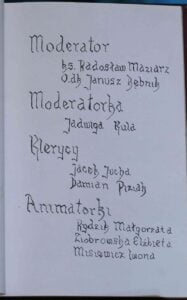 Moderator
ks. Radosław Maziarz
O.dk Janusz Rębnik
Moderatorka
Jadwiga Kula
Klerycy
Jacek Jucha
Damian Piziak
Animatorki
Rędzik Małgorzata
Ziobrowska Elżbieta
Misiewicz Iwona